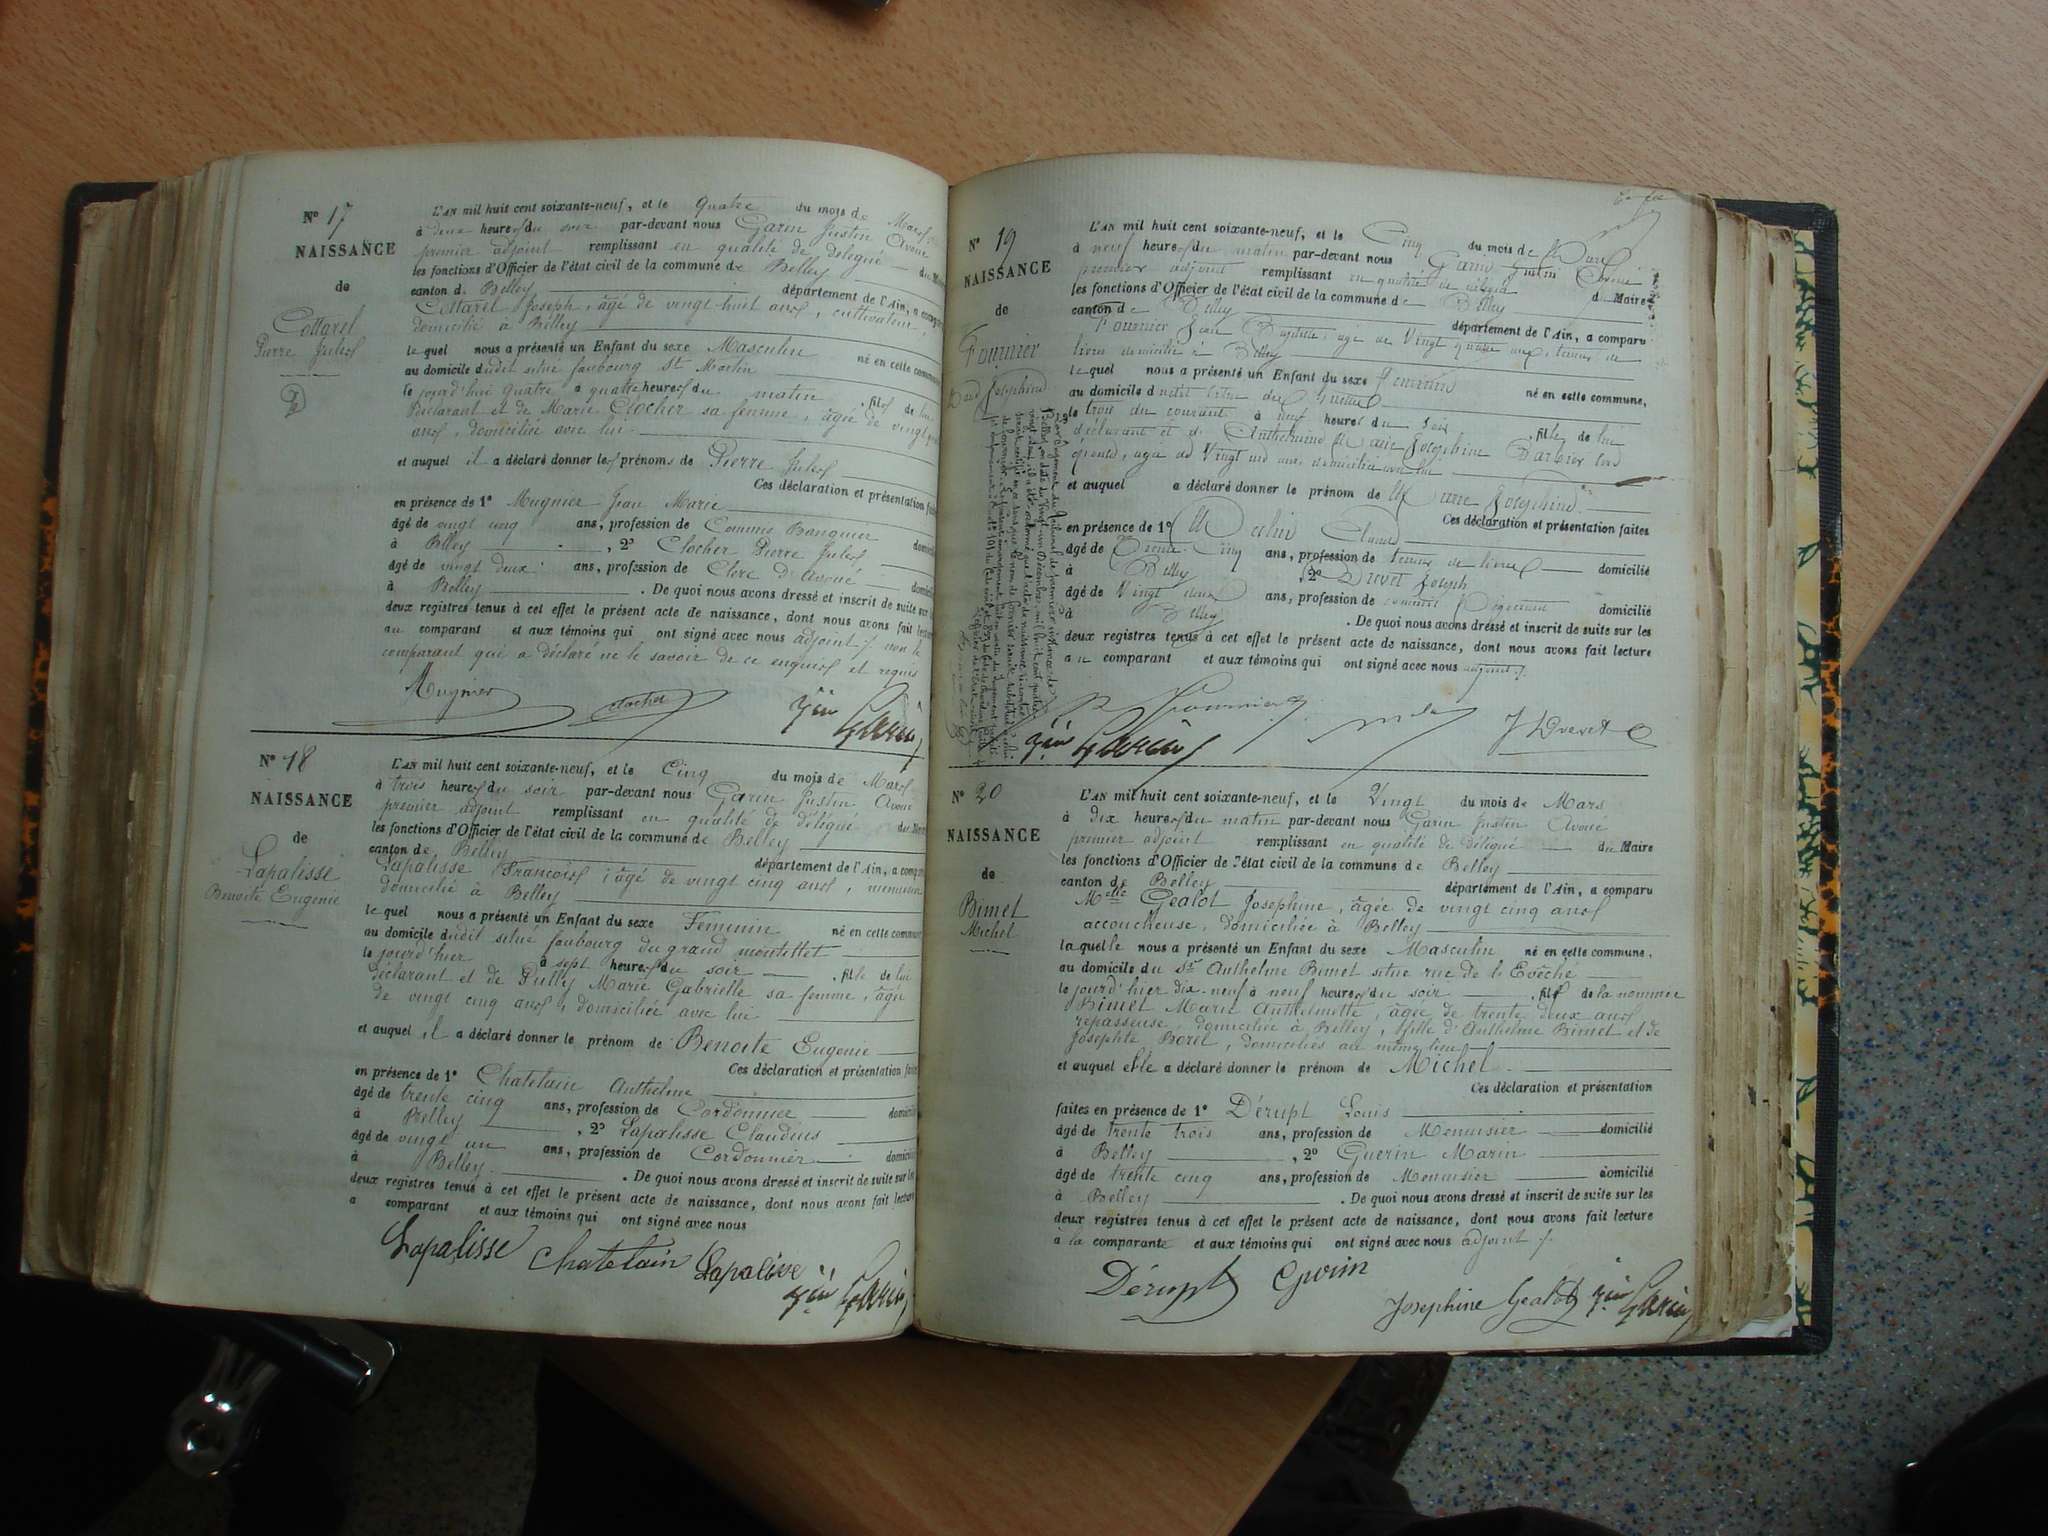 N° 17
NAISSANCE
de
Cottarel
Pierre Jules
L'AN mil huit cent soixante-neuf, et le quatre du mois de Mars
à deux heures du soir par-devant nous Garin Justin Avoué
premier adjoint remplissant en qualité de délégué du Maire
les fonctions d'Officier de l'état civil de la commune de Belley
canton de Belley département de l'Ain, a comparu
Cottarel Joseph, âgé de vingt huit ans, cultivateur,
domicilié à Belley
lequel nous a présenté un Enfant du sexe Masculin né en cette commune
au domicile dudit situé faubourg St Martin
le jourd'hui quatre à quatre heures du matin, fils de lui
Déclarant et de Marie Clocher sa femme, âgée de vingt
ans, domiciliée avec lui
et auquel il a déclaré donner les prénoms de Pierre Jules
Ces déclaration et présentation faites
en présence de 1° Mugnier Jean Marie
âgé de vingt cinq ans, profession de Commis Banquier domicilié
à Belley, 2° Clocher Pierre Jules
âgé de vingt deux ans, profession de Clerc d'avoué domicilié
à Belley. De quoi nous avons dressé et inscrit de suite sur les
deux registres tenus à cet effet le présent acte de naissance, dont nous avons fait lecture
au comparant et aux témoins qui ont signé avec nous adjoint non le
comparant qui a déclaré ne le savoir de ce enquis et requis
Mugnier Clocher Jin Garin
N° 18
NAISSANCE
de
Lapalisse
Benoite Eugenie
L'AN mil huit cent soixante-neuf, et le Cinq du mois de Mars
à trois heures du soir par-devant nous Garin Justin Avoué
premier adjoint remplissant en qualité de délégué du Maire
les fonctions d'Officier de l'état civil de la commune de Belley
canton de Belley département de l'Ain, a comparu
Lapalisse François, âgé de vingt cinq ans, menuisier
domicilié à Belley
lequel nous a présenté un Enfant du sexe Féminin né en cette commune
au domicile dudit situé faubourg du grand
le jourd'hier à sept heures du soir, fille de lui
déclarant et de Pully Marie Gabrielle sa femme, âgée
de vingt cinq ans, domiciliée avec lui
et auquel il a déclaré donner le prénom de Benoite Eugenie
Ces déclaration et présentation faites
en présence de 1° Chatelain Anthelme
âgé de trente cinq ans, profession de Cordonnier domicilié
à Belley, 2° Lapalisse Claudius
âgé de vingt un ans, profession de Cordonnier domicilié
à Belley. De quoi nous avons dressé et inscrit de suite sur les
deux registres tenus à cet effet le présent acte de naissance, dont nous avons fait lecture
a comparant et aux témoins qui ont signé avec nous
Lapalisse Chatelain Lapalisse Jin Garin
N° 19
NAISSANCE
de
Fournier
Marie Joséphine
L'AN mil huit cent soixante-neuf, et le Cinq du mois de Mars
à neuf heures du matin par-devant nous Garin Justin Avoué
premier adjoint remplissant en qualité de délégué du Maire
les fonctions d'Officier de l'état civil de la commune de Belley
canton de Belley département de l'Ain, a comparu
Fournier Jean Baptiste, âgé de Vingt quatre ans, teneur de
livres domicilié à Belley
lequel nous a présenté un Enfant du sexe Féminin né en cette commune,
au domicile dudit
le trois du courant à neuf heures du soir, fille de lui
déclarant et de Anthelmine Marie Joséphine Barbier son
épouse, agée de Vingt un ans, domiciliée avec lui
et auquel a déclaré donner le prénom de Marie Joséphine
Ces déclaration et présentation faites
en présence de 1° Claude
âgé de Trente Cinq ans, profession de teneur de livres domicilié
à Belley, 2° Drevet Joseph
âgé de Vingt deux ans, profession de commis Négociant domicilié
à Belley. De quoi nous avons dressé et inscrit de suite sur les
deux registres tenus à cet effet le présent acte de naissance, dont nous avons fait lecture
au comparant et aux témoins qui ont signé avec nous adjoint
Fournier J Drevet
Jin Garin
N° 20
NAISSANCE
de
Bimet
Michel
L'AN mil huit cent soixante-neuf, et le Vingt du mois de Mars
à dix heures du matin par-devant nous Garin Justin Avoué
premier adjoint remplissant en qualité de délégué du Maire
les fonctions d'Officier de l'état civil de la commune de Belley
canton de Belley département de l'Ain, a comparu
Melle Gealot Josephine, âgée de vingt cinq ans
accoucheuse, domiciliée à Belley
laquelle nous a présenté un Enfant du sexe Masculin né en cette commune,
au domicile du Sr Anthelme Bimet situé rue de l'Evêché
le jourd'hier dix-neuf à neuf heures du soir, fils de la nommée
Bimet Marie Anthelmette, agée de trente deux ans
repasseuse, domiciliée à Belley, fille d'Anthelme Bimet et de
Josephte Borel, domiciliés au même lieu
et auquel elle a déclaré donner le prénom de Michel
Ces déclaration et présentation
faites en présence de 1° Dérupt Louis
âgé de trente trois ans, profession de Menuisier domicilié
à Belley, 2° Guerin Marin
âgé de trente cinq ans, profession de Menuisier domicilié
à Belley. De quoi nous avons dressé et inscrit de suite sur les
deux registres tenus à cet effet le présent acte de naissance, dont nous avons fait lecture
à la comparante et aux témoins qui ont signé avec nous adjoint
Dérupt Guerin Josephine Gealot Jin Garin